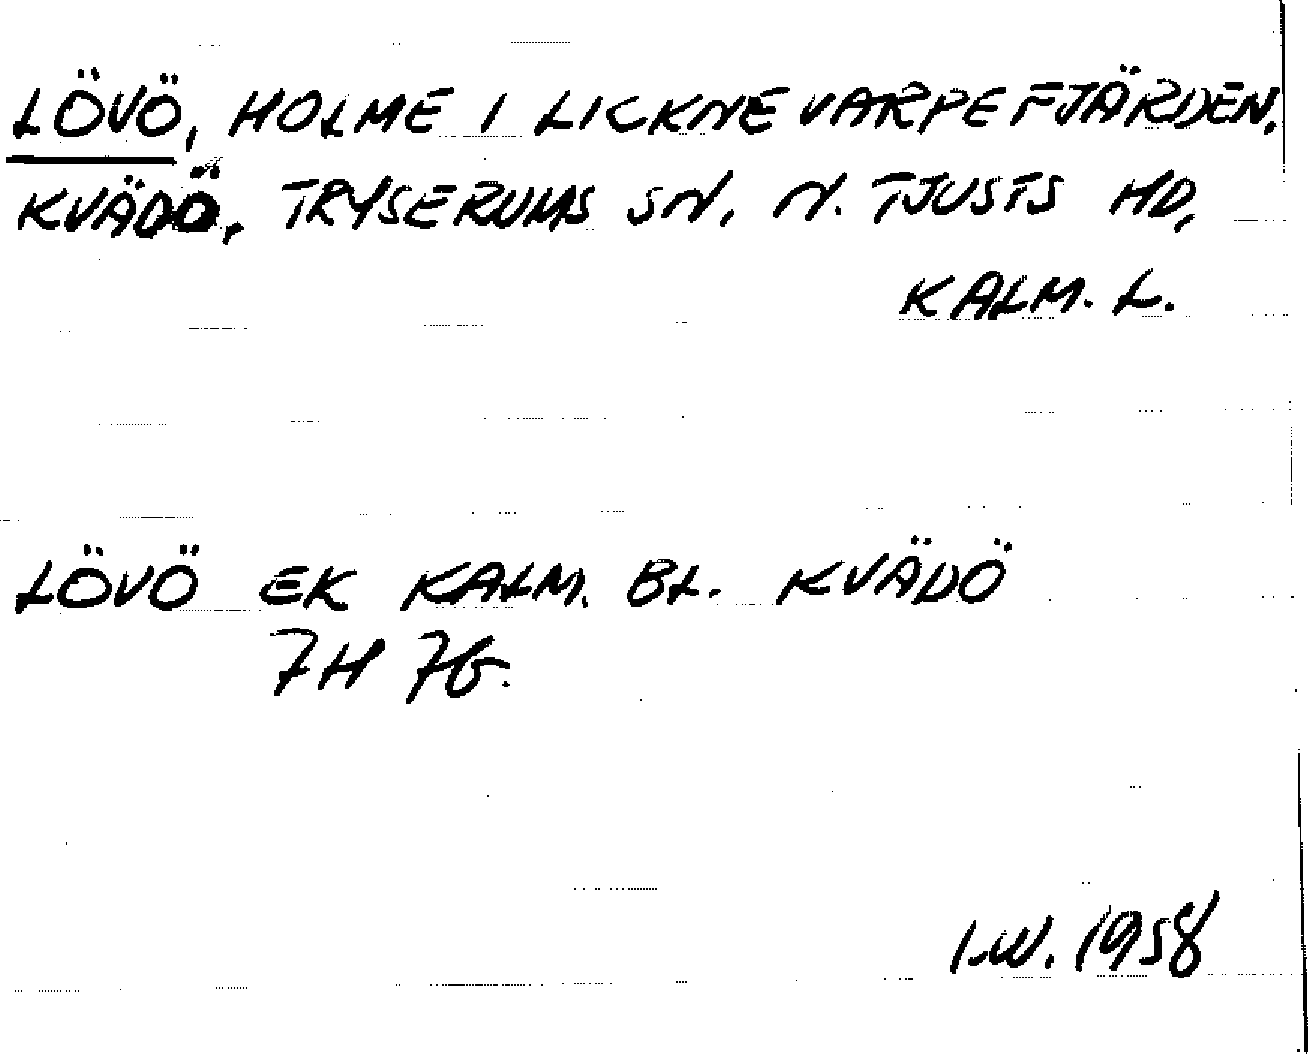 LÖVÖ, HOLME I LICKNEVARPEFJÄRDEN,
KVÄDÖ, TRYSERUMS SN, N. TJUSTS HD,
KALM. L.
LÖVÖ EK KALM. BL. KVÄDÖ
7H 7G.
I.W. 1958